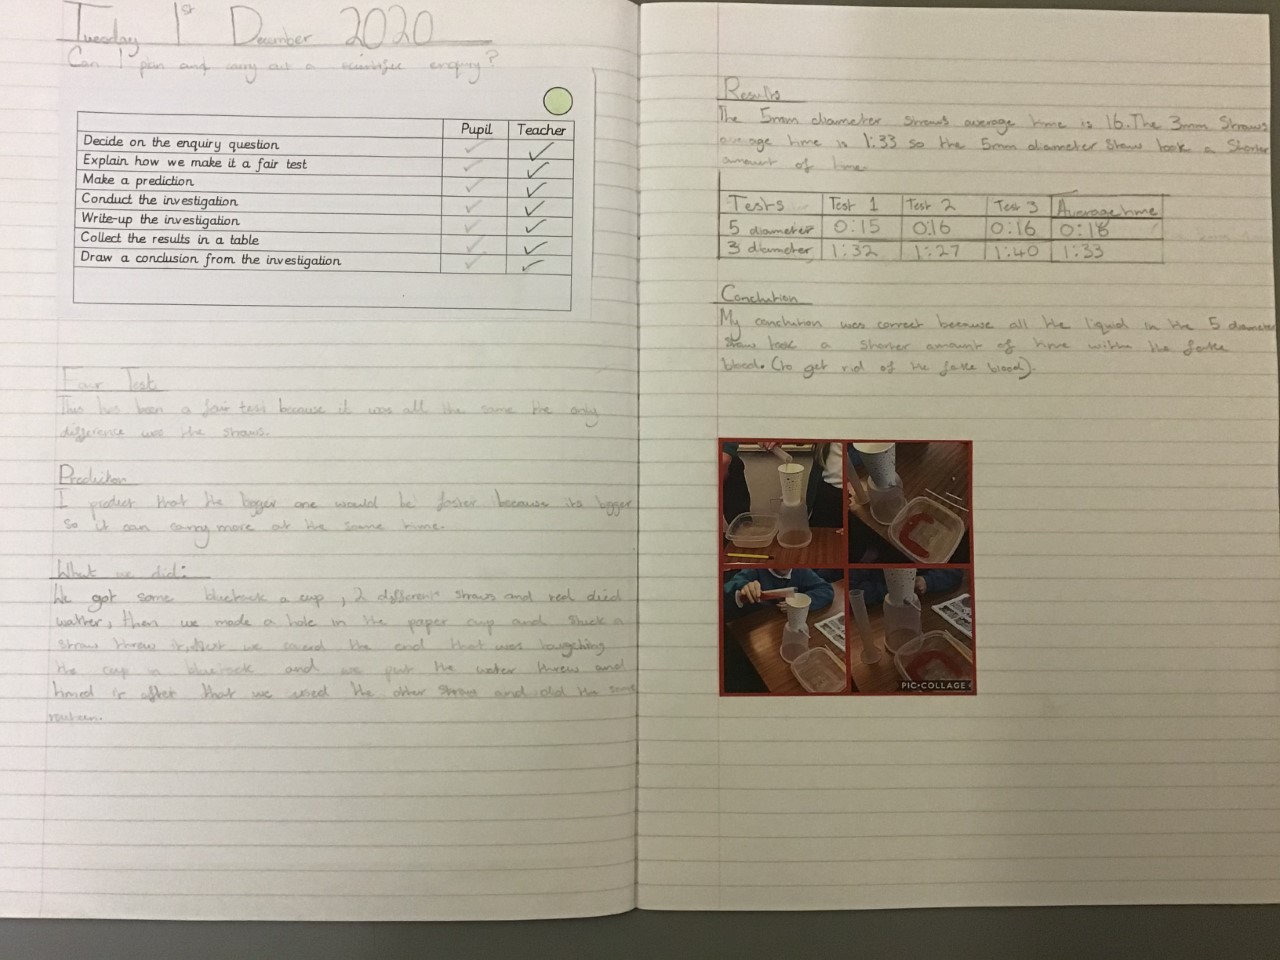 Tuesday 1st December 2020
Can I plan and carry out a scientific enquiry?
Pupil Teacher
Decide on the enquiry question
Explain how we make it a fair test
Make a prediction
Conduct the investigation
Write-up the investigation
Collect the results in a table
Draw a conclusion from the investigation
Fair Test
This has been a fair test because it was all the same the only
difference was the straws.
Prediction
I predict that the bigger one would be faster because its bigger
so it can carry more at the same time.
What we did:
We got some bluetack a cup, 2 different straws and red died
watter, then we made a hole in the paper cup and stuck a
straw threw it, we the end that was toughching
the cup in bluetack and we put the water threw and
timed it after that we used the other straw and did the same
rowteen.
Results
The 5mm diameter straws average time is 16. The 3mm straws
average time is 1:33 so the 5mm diameter straw took a shorter
amount of time
Tests Test 1 Test 2 Test 3 Average time
5 diameter 0:15 0:16 0:16 0:16
3 diameter 1:32 1:27 1:40 1:33
Conclution
My conclution was correct because all the liquid in the 5 diameter
straw took a shorter amount of time withe the fake
blood. (to get rid of the fake blood).
PIC•COLLAGE